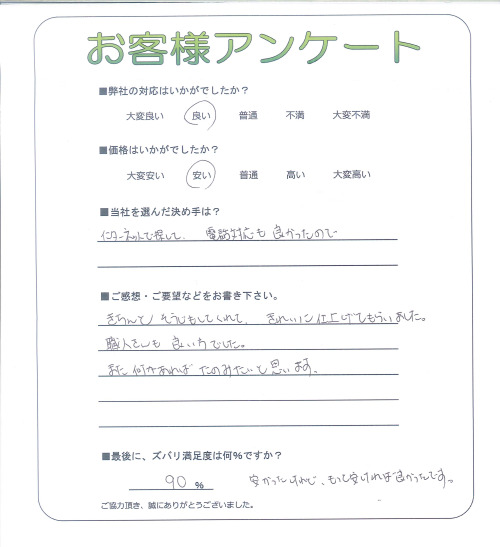 お客様アンケート
■弊社の対応はいかがでしたか？
大変良い 良い 普通 不満 大変不満
■価格はいかがでしたか？
大変安い 安い 普通 高い 大変高い
■当社を選んだ決め手は？
インターネットで探して、電話対応も良かったので
■ご感想・ご要望などをお書き下さい。
きちんとそうじもしてくれて、きれいに仕上げてもらいました。
職人さんも良い方でした。
また何かあればたのみたいと思います。
■最後に、ズバリ満足度は何％ですか？
90 % 安かったけれど、もっと安ければ良かったです。
ご協力頂き、誠にありがとうございました。